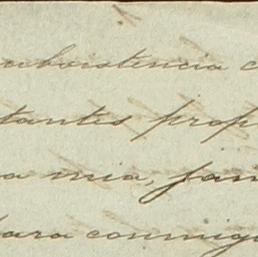 subsistencia c
tantes prop
a mia, fam
para conmigo